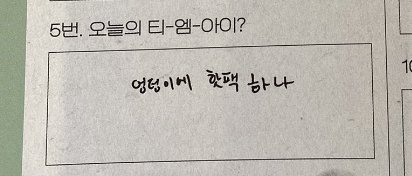 5번. 오늘의 티-엠-아이?
엉덩이에 핫팩 하나
10